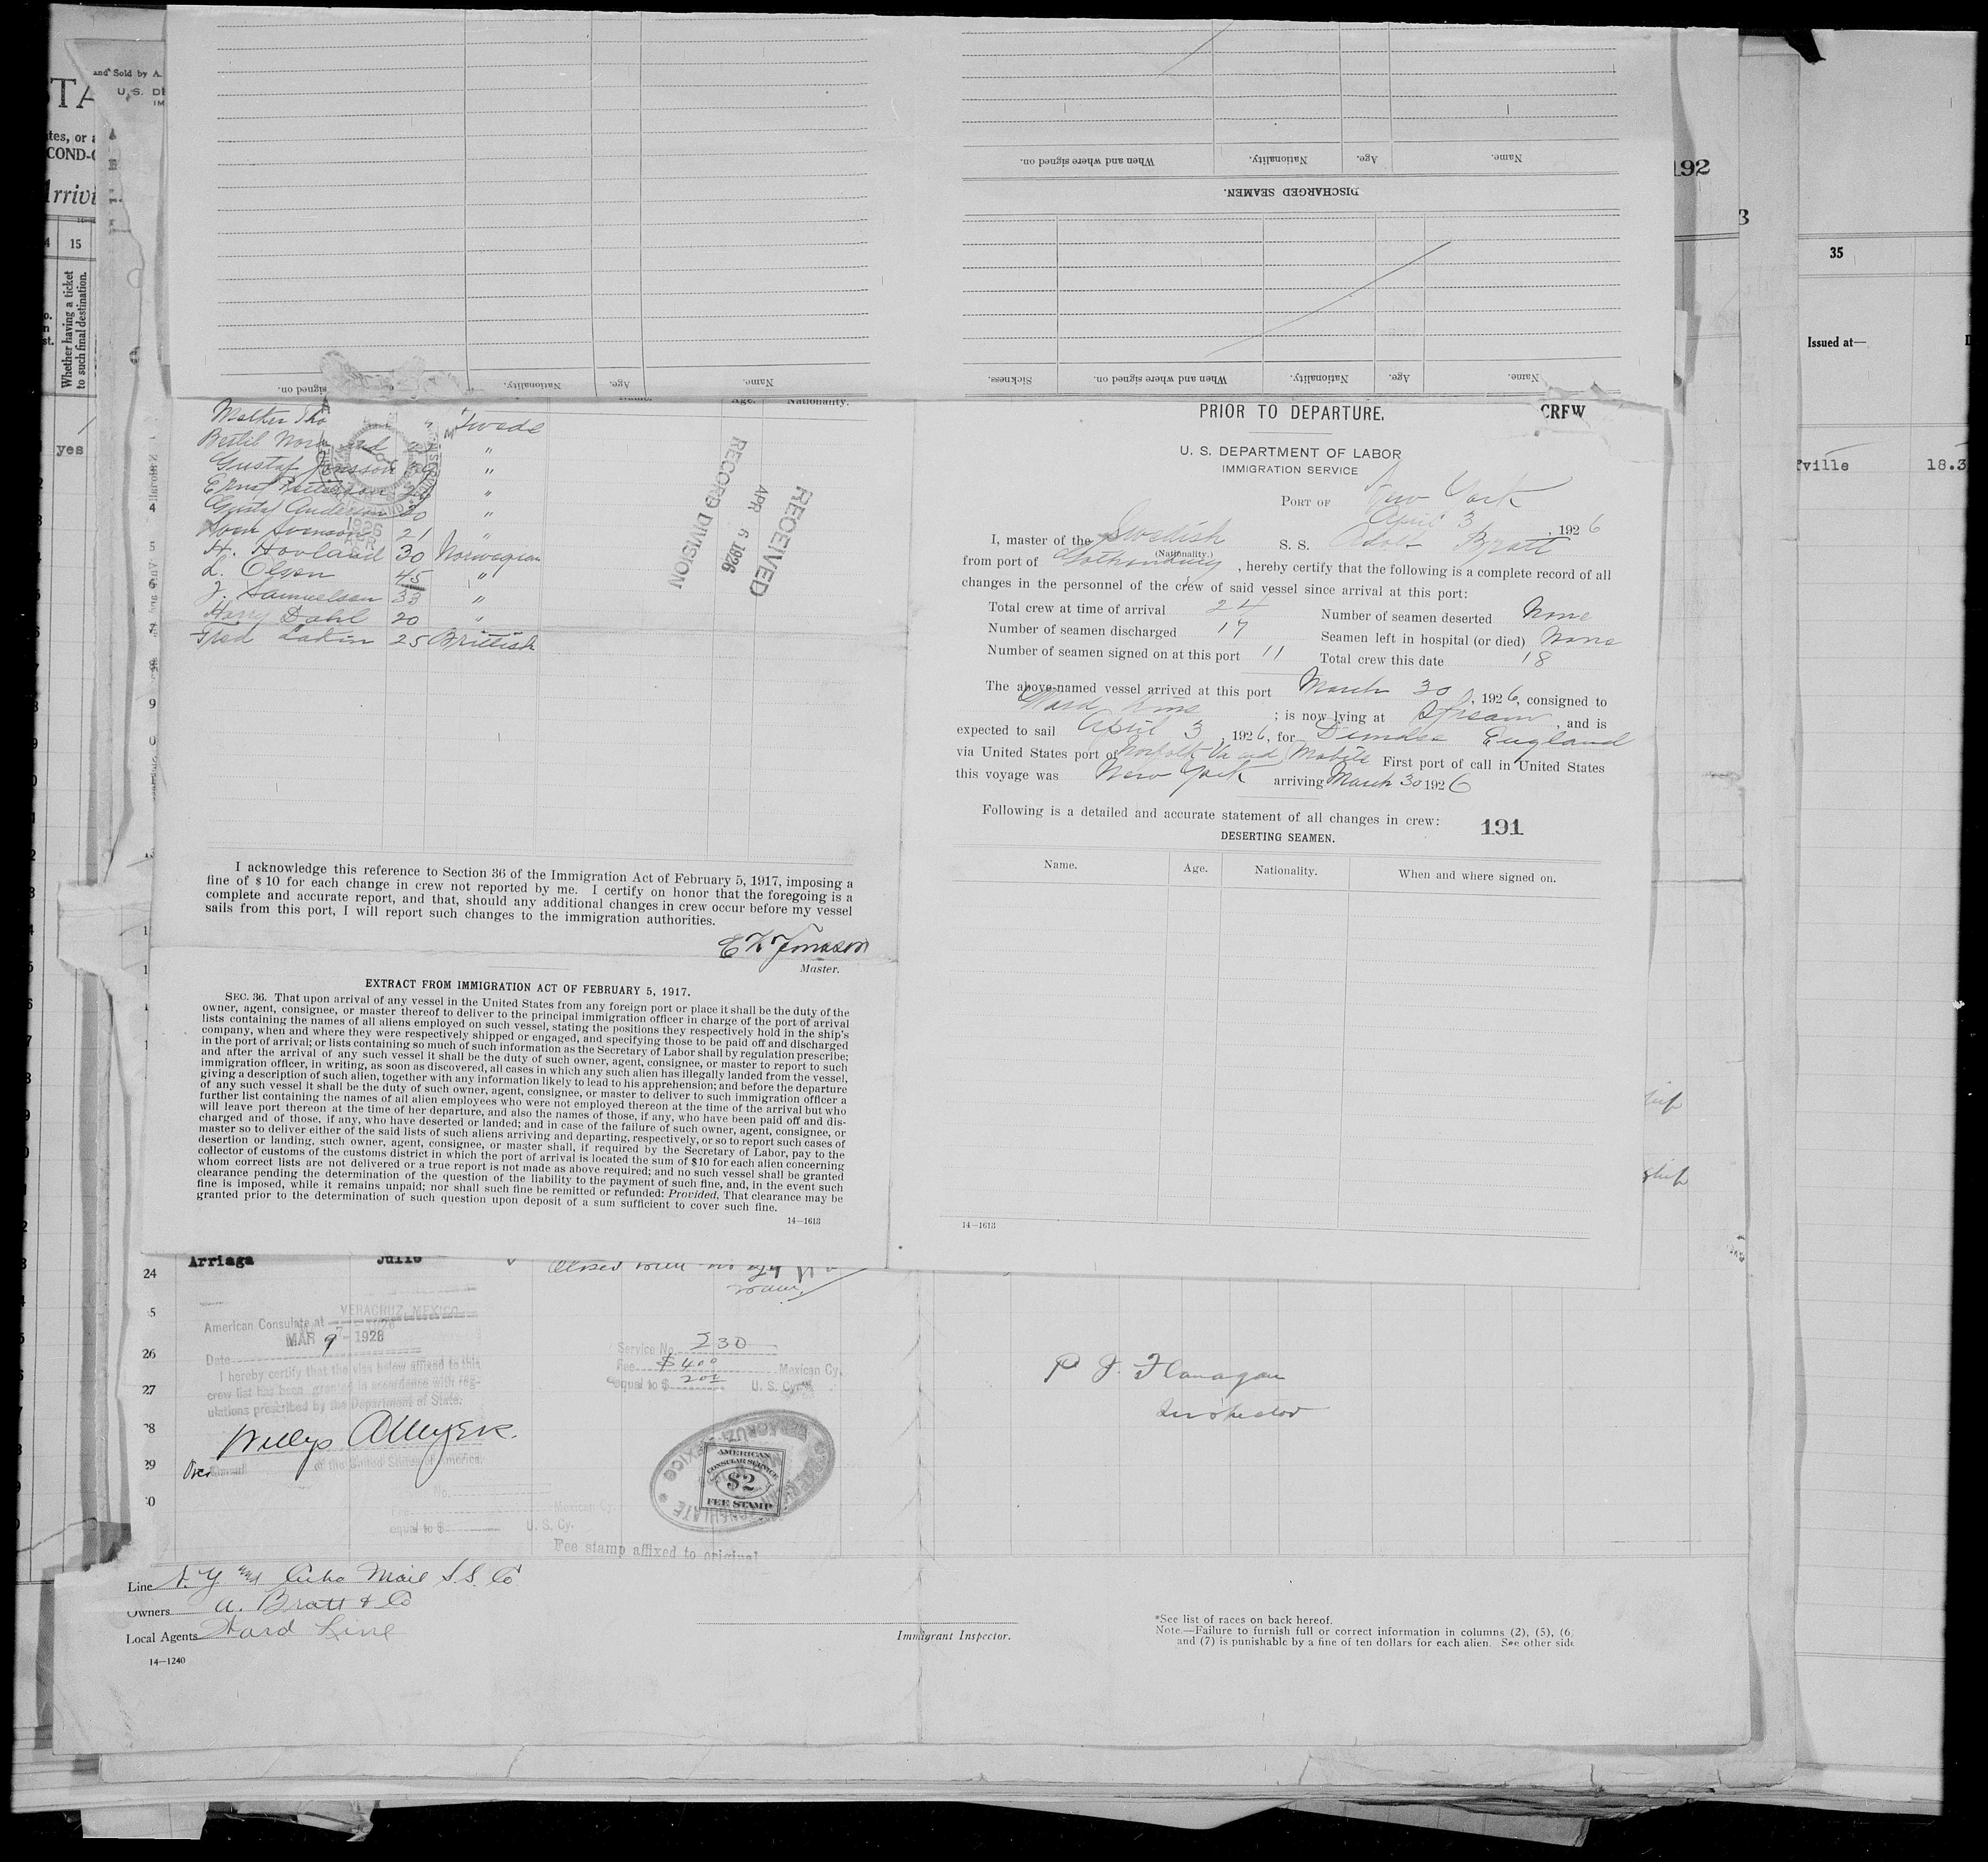 and Sold by A.
U.S. DE
IM
STA
ites, or a
COND-C
Arrivi
15
Whether having a ticket
to such final destination.
yes
192
3
35
Issued at—
ville
18.3
Name.
Age.
Nationality.
When and where signed on.
DISCHARGED SEAMEN.
Name.
Age.
Nationality.
When and where signed on.
Sickness,
Name.
Age.
Nationality.
signed on.
Age.
Nationality.
Swede
Gustaf Jonsson "
Gustaf Anderson 30 "
Sven Svenson 21 "
H. Hovland 30 Norwegian
L. Olsen 45 "
J. Samuelsen 33 "
Harry Dahl 20 "
Fred Lakin 25 British
RECEIVED
APR 6 1926
RECORD DIVISION
I acknowledge this reference to Section 36 of the Immigration Act of February 5, 1917, imposing a
fine of $10 for each change in crew not reported by me. I certify on honor that the foregoing is a
complete and accurate report, and that, should any additional changes in crew occur before my vessel
sails from this port, I will report such changes to the immigration authorities.
Master.
EXTRACT FROM IMMIGRATION ACT OF FEBRUARY 5, 1917.
SEC. 36. That upon arrival of any vessel in the United States from any foreign port or place it shall be the duty of the
owner, agent, consignee, or master thereof to deliver to the principal immigration officer in charge of the port of arrival
lists containing the names of all aliens employed on such vessel, stating the positions they respectively hold in the ship's
company, when and where they were respectively shipped or engaged, and specifying those to be paid off and discharged
in the port of arrival; or lists containing so much of such information as the Secretary of Labor shall by regulation prescribe;
and after the arrival of any such vessel it shall be the duty of such owner, agent, consignee, or master to report to such
immigration officer, in writing, as soon as discovered, all cases in which any such alien has illegally landed from the vessel,
giving a description of such alien, together with any information likely to lead to his apprehension; and before the departure
of any such vessel it shall be the duty of such owner, agent, consignee, or master to deliver to such immigration officer a
further list containing the names of all alien employees who were not employed thereon at the time of the arrival but who
will leave port thereon at the time of her departure, and also the names of those, if any, who have been paid off and dis-
charged and of those, if any, who have deserted or landed; and in case of the failure of such owner, agent, consignee, or
master so to deliver either of the said lists of such aliens arriving and departing, respectively, or so to report such cases of
desertion or landing, such owner, agent, consignee, or master shall, if required by the Secretary of Labor, pay to the
collector of customs of the customs district in which the port of arrival is located the sum of $10 for each alien concerning
whom correct lists are not delivered or a true report is not made as above required; and no such vessel shall be granted
clearance pending the determination of the question of the liability to the payment of such fine, and, in the event such
fine is imposed, while it remains unpaid; nor shall such fine be remitted or refunded: Provided, That clearance may be
granted prior to the determination of such question upon deposit of a sum sufficient to cover such fine.
14—1613
PRIOR TO DEPARTURE.
CREW
U. S. DEPARTMENT OF LABOR
IMMIGRATION SERVICE
PORT OF New York
April 3, 1926
I, master of the Swedish S. S. Adolf Bratt
(Nationality.)
from port of Gothenburg, hereby certify that the following is a complete record of all
changes in the personnel of the crew of said vessel since arrival at this port:
Total crew at time of arrival 24 Number of seamen deserted None
Number of seamen discharged 17 Seamen left in hospital (or died) None
Number of seamen signed on at this port 11 Total crew this date 18
The above-named vessel arrived at this port March 30, 1926, consigned to
Ward Line ; is now lying at Stream, and is
expected to sail April 3, 1926, for Dundee England
via United States port of Norfolk Va and Mobile First port of call in United States
this voyage was New York arriving March 30 1926
Following is a detailed and accurate statement of all changes in crew:
191
DESERTING SEAMEN.
Name.
Age.
Nationality.
When and where signed on.
14—1613
24 Arriaga Julio
26
27
28
29
American Consulate at VERACRUZ, MEXICO
Date MAR 9 - 1926
I hereby certify that the visa below affixed to this
crew list has been granted in accordance with reg-
ulations prescribed by the Department of State.
of the United States of America.
No.
Fee Mexican Cy.
equal to $ U. S. Cy.
Fee stamp affixed to original
Service No. 230
Fee $4.00 Mexican Cy.
equal to $ 2.00 U. S. Cy.
AMERICAN
CONSULAR SERVICE
$2
FEE STAMP
P J Flanagan
Inspector
Line N.Y. and Cuba Mail S.S. Co
Owners A. Bratt & Co
Local Agents Ward Line
14—1240
Immigrant Inspector.
*See list of races on back hereof.
Note.—Failure to furnish full or correct information in columns (2), (5), (6)
and (7) is punishable by a fine of ten dollars for each alien. See other side